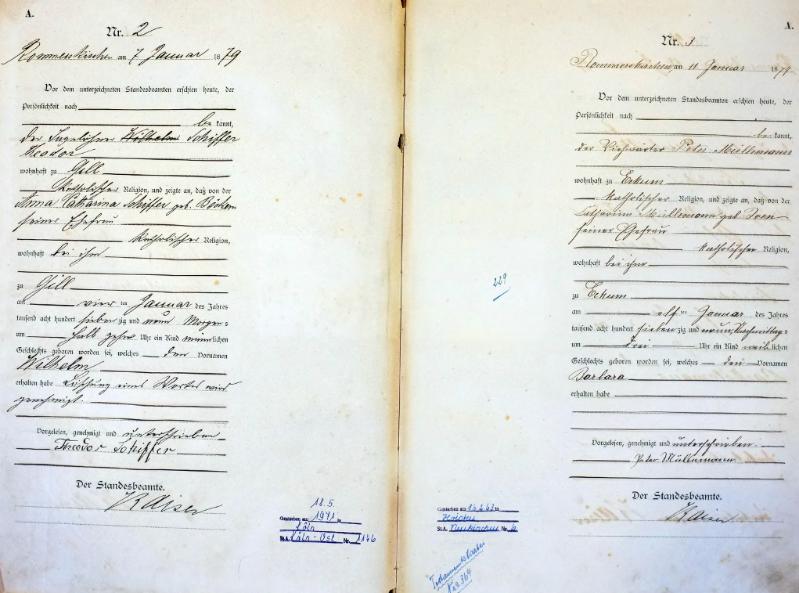 A.
Nr. 2
Rommerskirchen am 7 Januar 1879
Vor dem unterzeichneten Standesbeamten erschien heute, der
Persönlichkeit nach
be kannt,
der Wilhelm Schiffer
Theodor
wohnhaft zu Gill
Katholischer Religion, und zeigte an, daß von der
Anna Catharina Schiffer geb.
seiner Ehefrau
Katholischer Religion,
wohnhaft bei ihm
zu Gill
am vier ten Januar des Jahres
tausend acht hundert sieben zig und neun Morgens
um halb zehn Uhr ein Kind männlichen
Geschlechts geboren worden sei, welches den Vornamen
Wilhelm
erhalten habe Löschung eines Wortes wird
genehmigt.
Vorgelesen, genehmigt und unterschrieben
Theodor Schiffer
Der Standesbeamte.
Kaiser
18.5.
Gestorben am 1971 in
Köln
St.A. Köln-Ost Nr. 1146
A.
Nr. 3
Rommerskirchen am 11 Januar 1879
Vor dem unterzeichneten Standesbeamten erschien heute, der
Persönlichkeit nach
be kannt,
der Peter Müllemann
wohnhaft zu Eckum
Katholischer Religion, und zeigte an, daß von der
Catharina Müllemann geb.
seiner Ehefrau
Katholischer Religion,
wohnhaft bei ihm
zu Eckum
am elf ten Januar des Jahres
tausend acht hundert sieben zig und neun, Nachmittags
um drei Uhr ein Kind weiblichen
Geschlechts geboren worden sei, welches den Vornamen
Barbara
erhalten habe
Vorgelesen, genehmigt und unterschrieben.
Peter Müllemann
Der Standesbeamte.
Kaiser
229
Gestorben am in
St.A. Neukirchen Nr.